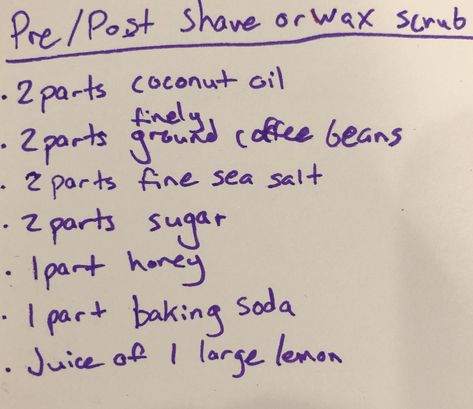 Pre/Post Shave or Wax scrub
• 2 parts coconut oil
finely
• 2 parts ground coffee beans
• 2 parts fine sea salt
• 2 parts sugar
• 1 part honey
• 1 part baking soda
• Juice of 1 large lemon